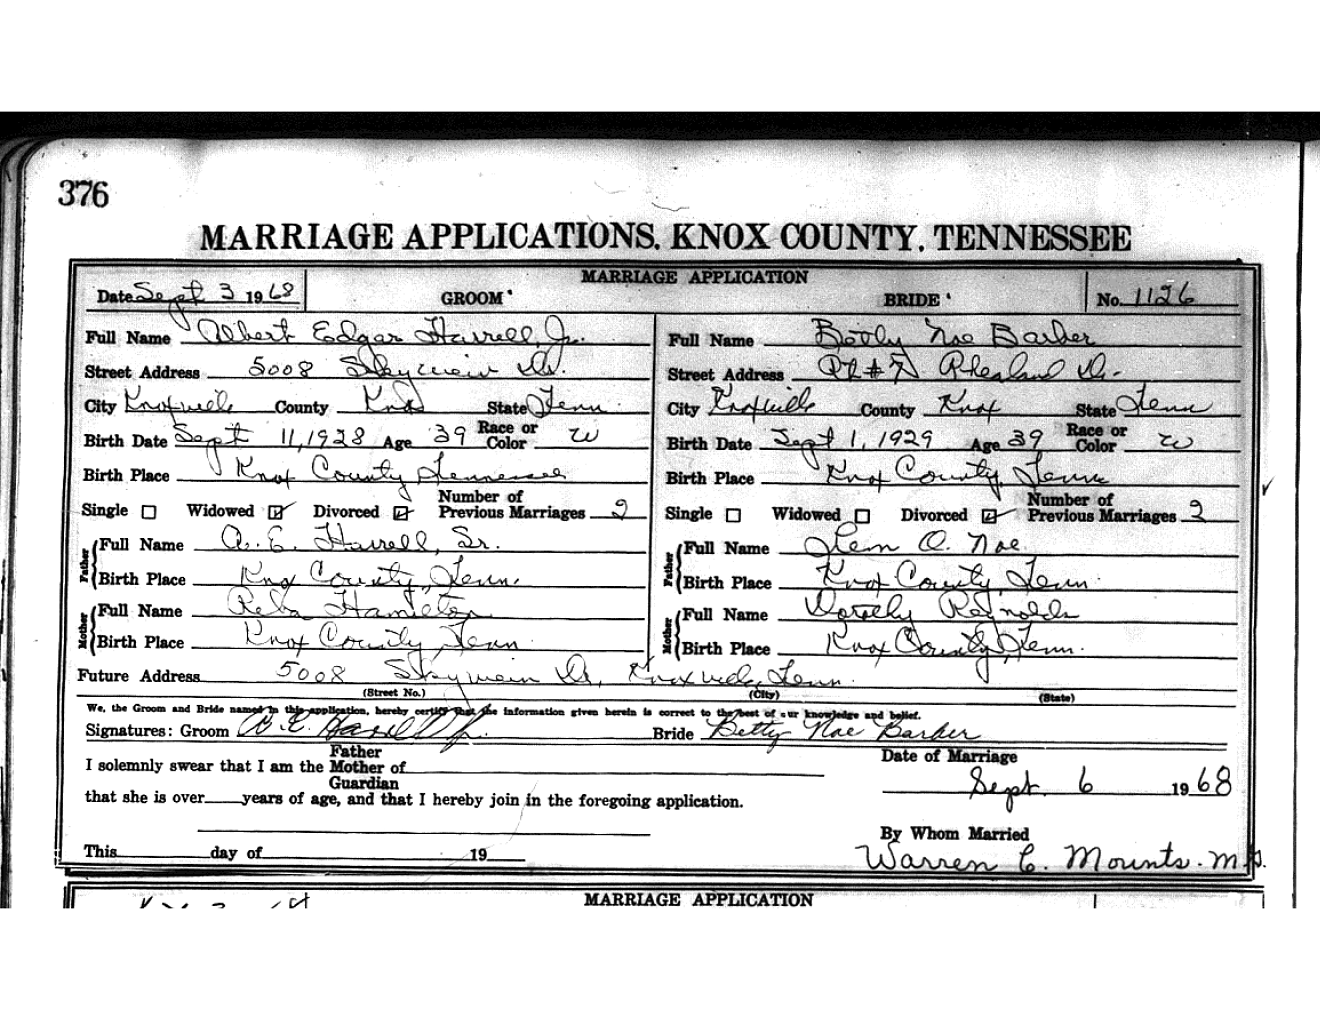 376
MARRIAGE APPLICATIONS, KNOX COUNTY, TENNESSEE
MARRIAGE APPLICATION
Date Sept 3 1968 GROOM BRIDE No. 1126
Full Name Albert Edgar Harrell, Jr. Full Name Betty Noe Barber
Street Address 5008 Skyview Dr. Street Address Rt #7 Dr.
City Knoxville County Knox State Tenn. City Knoxville County Knox State Tenn
Birth Date Sept 11, 1928 Age 39 Race or Color W Birth Date Sept 1, 1929 Age 39 Race or Color W
Birth Place Knox County, Tennessee Birth Place Knox County, Tenn
Single Widowed Divorced Number of Previous Marriages 2 Single Widowed Divorced Number of Previous Marriages 2
Father Full Name A. E. Harrell, Sr. Father Full Name O. Noe.
Birth Place Knox County, Tenn. Birth Place Knox County, Tenn.
Mother Full Name Reba Hamilton Mother Full Name Dorothy Reynolds
Birth Place Knox County, Tenn. Birth Place Knox County, Tenn.
Future Address 5008 Skyview Dr, Knoxville, Tenn.
(Street No.) (City) (State)
We, the Groom and Bride named in this application, hereby certify that the information given herein is correct to the best of our knowledge and belief.
Signatures: Groom A. E. Harrell Jr. Bride Betty Noe Barber
Father
I solemnly swear that I am the Mother of
Guardian
Date of Marriage
Sept. 6 1968
that she is over years of age, and that I hereby join in the foregoing application.
By Whom Married
This day of 19 Warren C. Mounts. M.G.
MARRIAGE APPLICATION